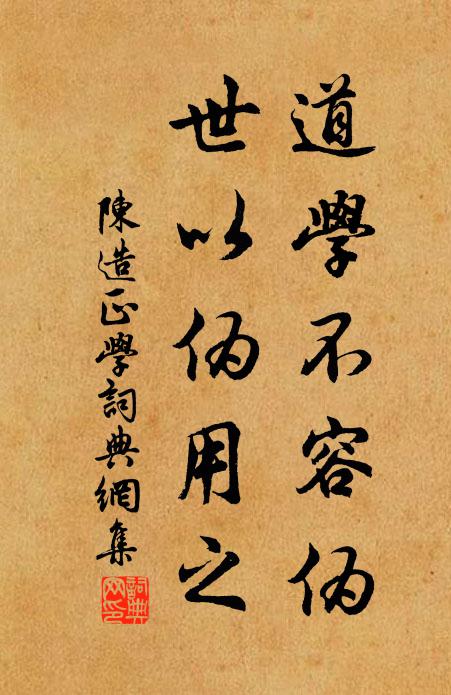 道學不容伪
世以伪用之
陳造正學詞典網集
詞典网印